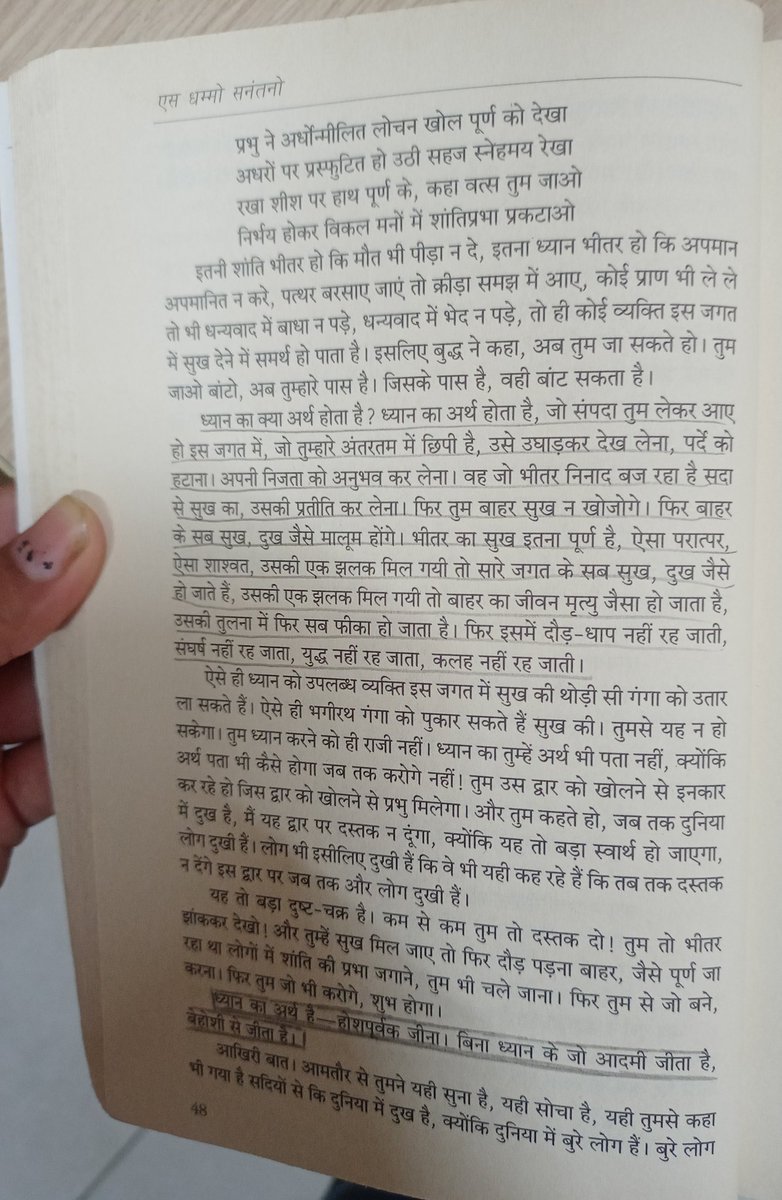 एस धम्मो सनंतनो
प्रभु ने अर्धोन्मीलित लोचन खोल पूर्ण को देखा
अधरों पर प्रस्फुटित हो उठी सहज स्नेहमय रेखा
रखा शीश पर हाथ पूर्ण के, कहा वत्स तुम जाओ
निर्भय होकर विकल मनों में शांतिप्रभा प्रकटाओ
इतनी शांति भीतर हो कि मौत भी पीड़ा न दे, इतना ध्यान भीतर हो कि अपमान
अपमानित न करे, पत्थर बरसाए जाएं तो क्रीड़ा समझ में आए, कोई प्राण भी ले ले
तो भी धन्यवाद में बाधा न पड़े, धन्यवाद में भेद न पड़े, तो ही कोई व्यक्ति इस जगत
में सुख देने में समर्थ हो पाता है। इसलिए बुद्ध ने कहा, अब तुम जा सकते हो। तुम
जाओ बांटो, अब तुम्हारे पास है। जिसके पास है, वही बांट सकता है।
ध्यान का क्या अर्थ होता है? ध्यान का अर्थ होता है, जो संपदा तुम लेकर आए
हो इस जगत में, जो तुम्हारे अंतरतम में छिपी है, उसे उघाड़कर देख लेना, पर्दे को
हटाना। अपनी निजता को अनुभव कर लेना। वह जो भीतर निनाद बज रहा है सदा
से सुख का, उसकी प्रतीति कर लेना। फिर तुम बाहर सुख न खोजोगे। फिर बाहर
के सब सुख, दुख जैसे मालूम होंगे। भीतर का सुख इतना पूर्ण है, ऐसा परात्पर,
ऐसा शाश्वत, उसकी एक झलक मिल गयी तो सारे जगत के सब सुख, दुख जैसे
हो जाते हैं, उसकी एक झलक मिल गयी तो बाहर का जीवन मृत्यु जैसा हो जाता है,
उसकी तुलना में फिर सब फीका हो जाता है। फिर इसमें दौड़-धाप नहीं रह जाती,
संघर्ष नहीं रह जाता, युद्ध नहीं रह जाता, कलह नहीं रह जाती।
ऐसे ही ध्यान को उपलब्ध व्यक्ति इस जगत में सुख की थोड़ी सी गंगा को उतार
ला सकते हैं। ऐसे ही भगीरथ गंगा को पुकार सकते हैं सुख की। तुमसे यह न हो
सकेगा। तुम ध्यान करने को ही राजी नहीं। ध्यान का तुम्हें अर्थ भी पता नहीं, क्योंकि
अर्थ पता भी कैसे होगा जब तक करोगे नहीं! तुम उस द्वार को खोलने से इनकार
कर रहे हो जिस द्वार को खोलने से प्रभु मिलेगा। और तुम कहते हो, जब तक दुनिया
में दुख है, मैं यह द्वार पर दस्तक न दूंगा, क्योंकि यह तो बड़ा स्वार्थ हो जाएगा,
लोग दुखी हैं। लोग भी इसीलिए दुखी हैं कि वे भी यही कह रहे हैं कि तब तक दस्तक
न देंगे इस द्वार पर जब तक और लोग दुखी हैं।
यह तो बड़ा दुष्ट-चक्र है। कम से कम तुम तो दस्तक दो! तुम तो भीतर
झांककर देखो! और तुम्हें सुख मिल जाए तो फिर दौड़ पड़ना बाहर, जैसे पूर्ण जा
रहा था लोगों में शांति की प्रभा जगाने, तुम भी चले जाना। फिर तुम से जो बने,
करना। फिर तुम जो भी करोगे, शुभ होगा।
ध्यान का अर्थ है—होशपूर्वक जीना। बिना ध्यान के जो आदमी जीता है,
बेहोशी से जीता है।
आखिरी बात। आमतौर से तुमने यही सुना है, यही सोचा है, यही तुमसे कहा
भी गया है सदियों से कि दुनिया में दुख है, क्योंकि दुनिया में बुरे लोग हैं। बुरे लोग
48